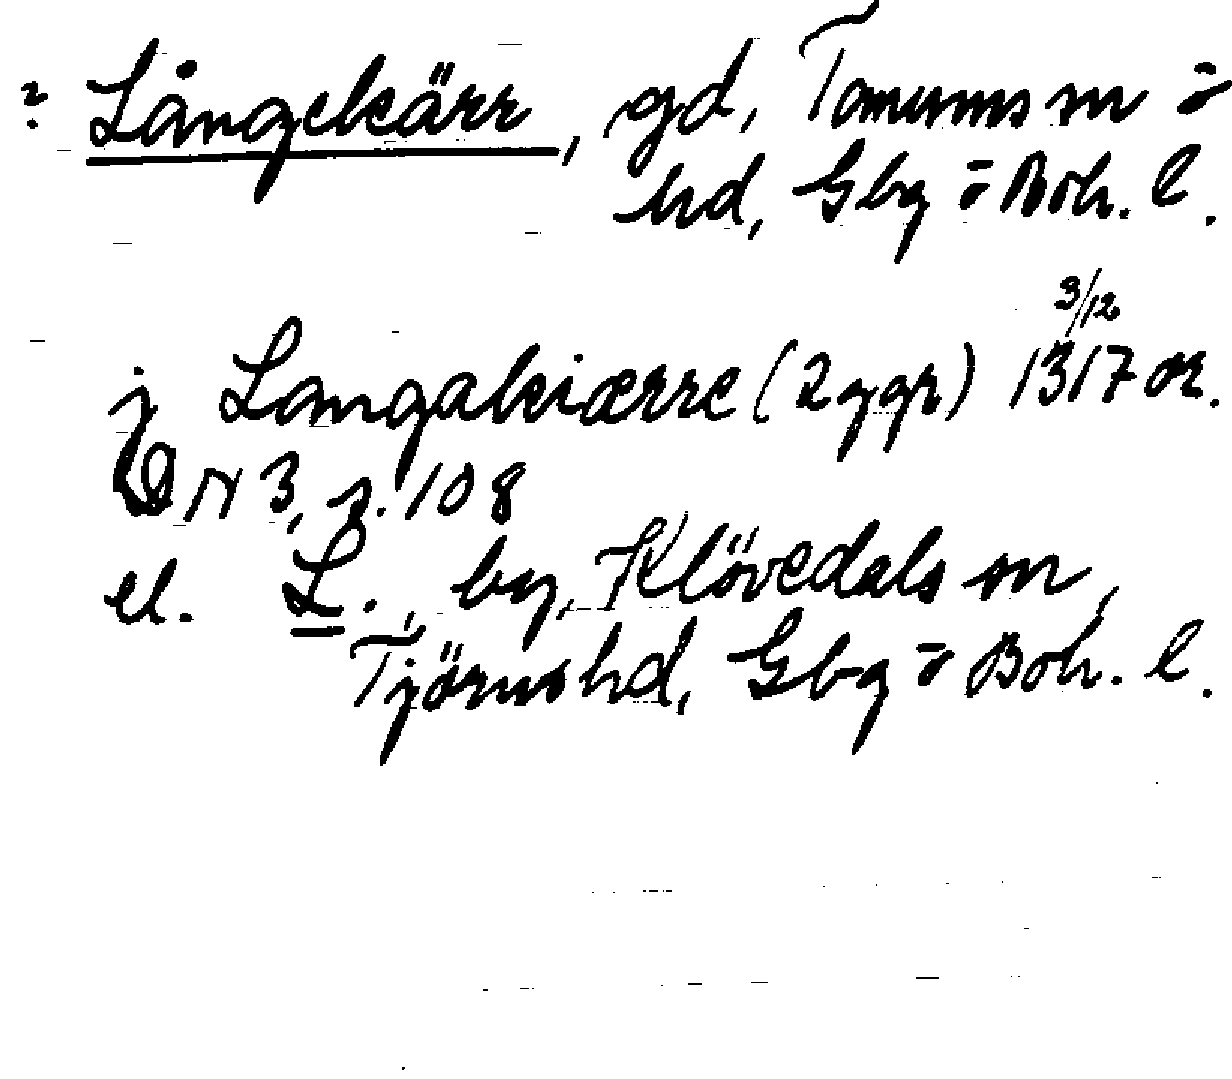 ? Långekärr, gd, Tanums sn o
hd, Gbg o Boh. l.
3/12
j Langakiærre (2 ggr) 1317 or.
DN 3, s. 108
el. L., by, Klövedals sn,
Tjörns hd, Gbg o Boh. l.